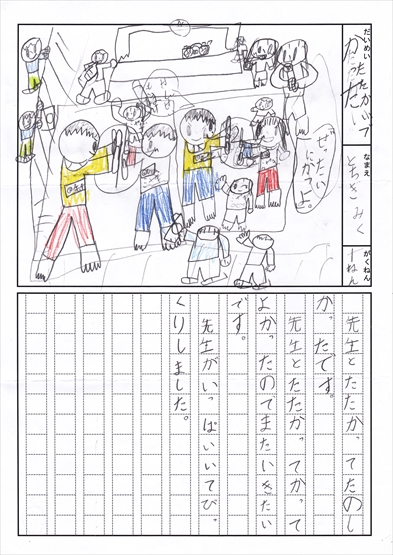 だいめい
なまえ
とちき みく
がくねん
一ねん
ぜったい
にかつよ。
先生とたたかってたのし
かったです。
先生とたたかってかって
よかったのでまたいきたい
です。
先生がいっぱいいてびっ
くりしました。